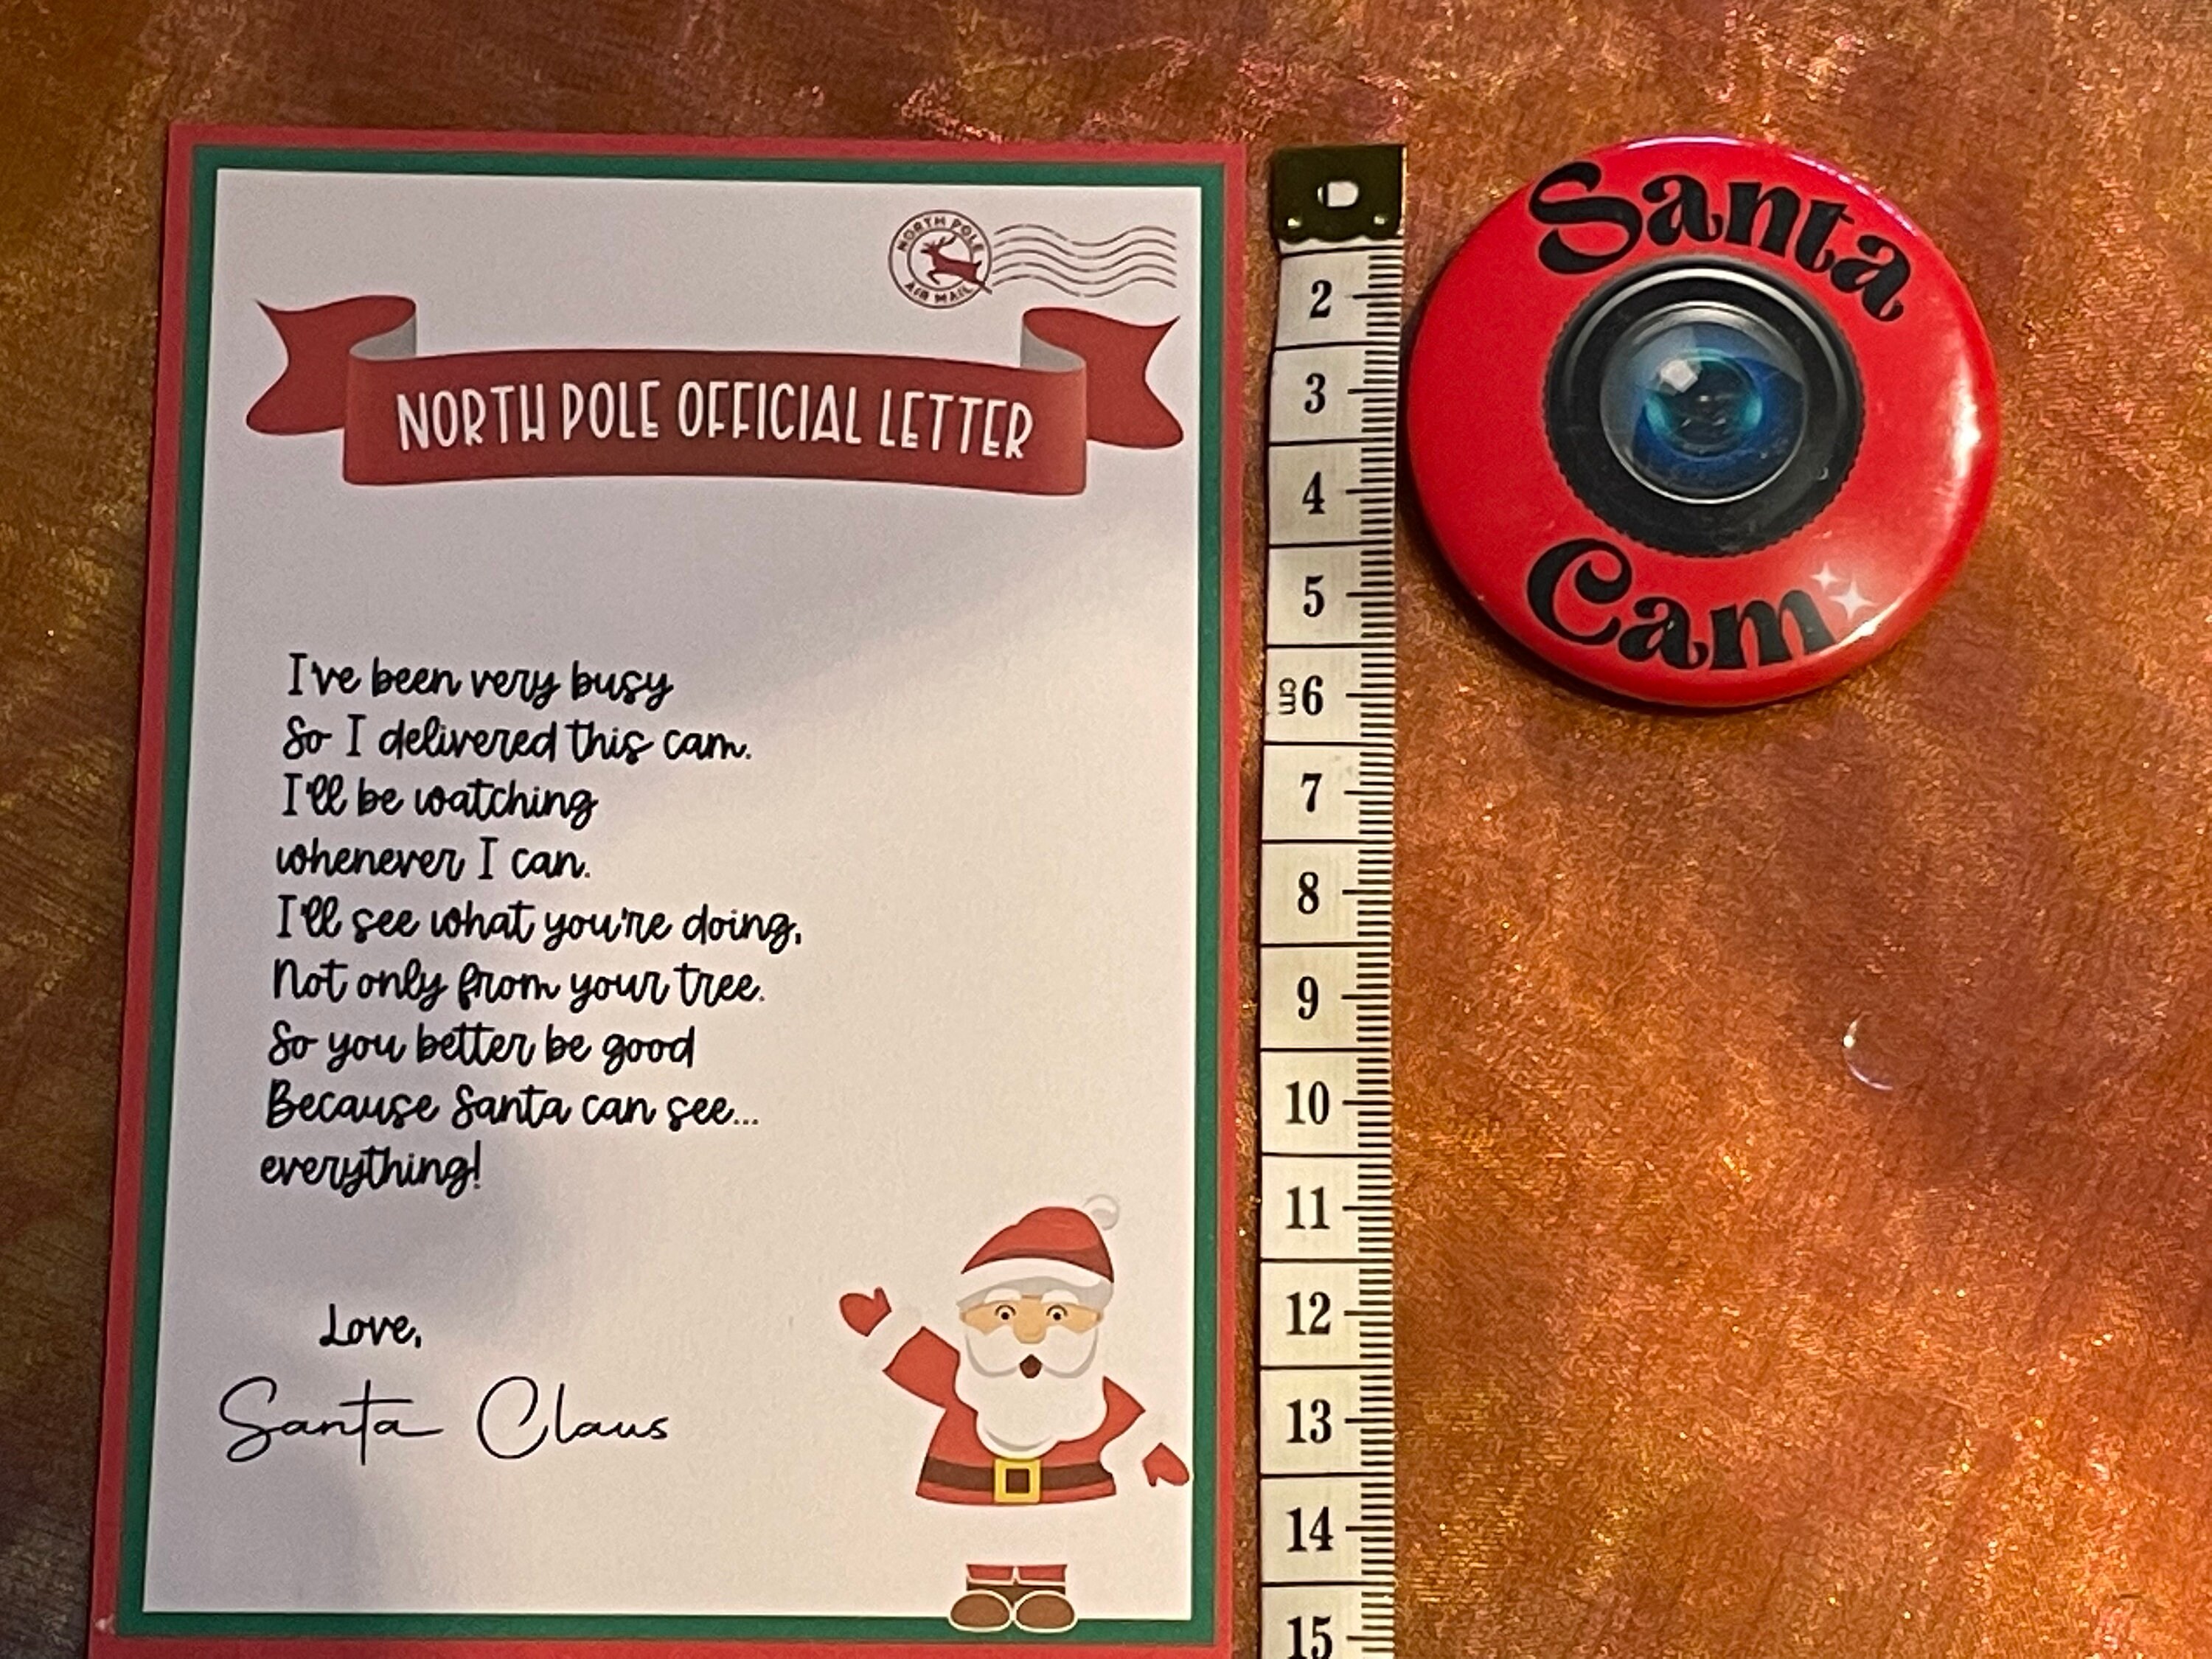 NORTH POLE
AIR MAIL
NORTH POLE OFFICIAL LETTER
I've been very busy
So I delivered this cam.
I'll be watching
whenever I can.
I'll see what you're doing,
Not only from your tree.
So you better be good
Because Santa can see...
everything!
Love,
Santa Claus
2
3
4
5
cm 6
7
8
9
10
11
12
13
14
15
Santa
Cam